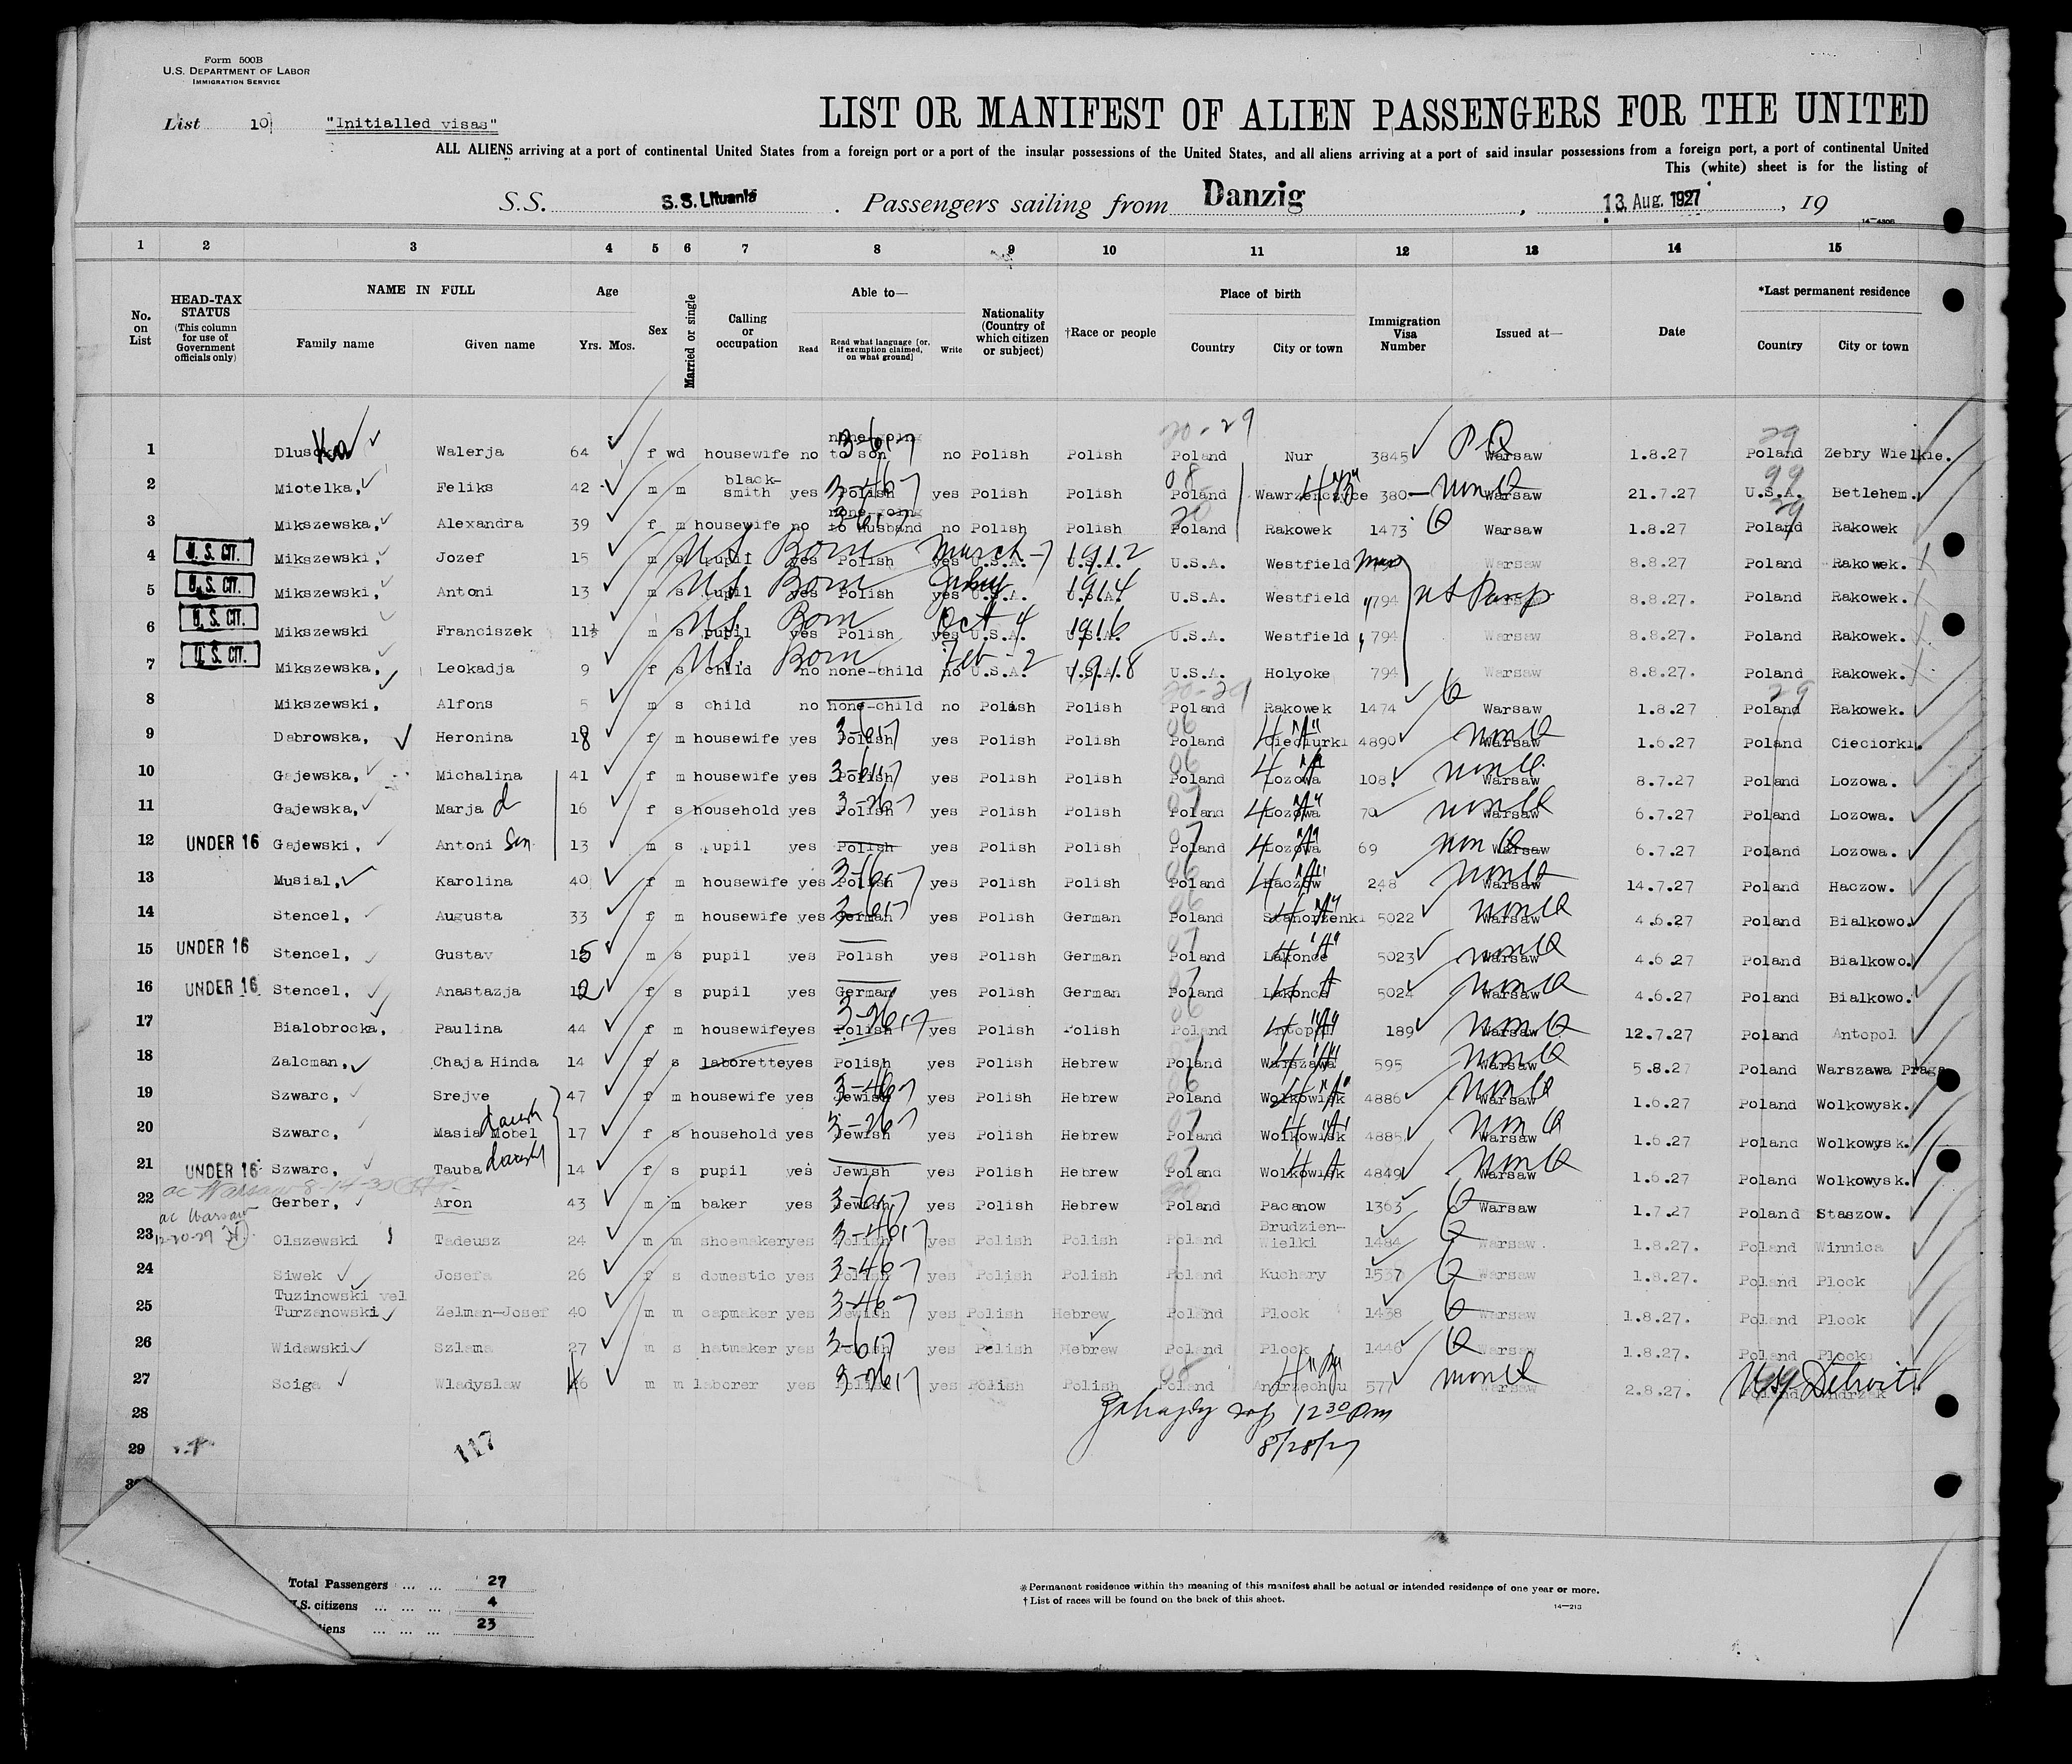 Form 500B
U.S. DEPARTMENT OF LABOR
IMMIGRATION SERVICE
List 10 "Initialled visas"
LIST OR MANIFEST OF ALIEN PASSENGERS FOR THE UNITED
ALL ALIENS arriving at a port of continental United States from a foreign port or a port of the insular possessions of the United States, and all aliens arriving at a port of said insular possessions from a foreign port, a port of continental United
This (white) sheet is for the listing of
S.S. S.S. Lituania . Passengers sailing from Danzig , 13. Aug. 1927 , 19
1 2 3 4 5 6 7 8 9 10 11 12 13 14 15
No. on List HEAD-TAX STATUS (This column for use of Government officials only) NAME IN FULL Family name Given name Age Yrs. Mos. Sex Married or single Calling or occupation Able to— Read Read what language [or, if exemption claimed, on what ground] Write Nationality (Country of which citizen or subject) †Race or people Place of birth Country City or town Immigration Visa Number Issued at— Date *Last permanent residence Country City or town
1 Walerja 64 f wd housewife no none-going to son no Polish Polish Poland Nur 3845 Warsaw 1.8.27 Poland Zebry Wielkie.
2 Miotelka, Feliks 42 m m black-smith yes Polish yes Polish Polish Poland Wawrzenczyce 380 Warsaw 21.7.27 U.S.A. Betlehem.
3 Mikszewska, Alexandra 39 f m housewife no none-going to husband no Polish Polish Poland Rakowek 1473 Q Warsaw 1.8.27 Poland Rakowek
4 U.S. CIT. Mikszewski, Jozef 15 m s pupil yes Polish yes U.S.A. U.S.A. U.S.A. Westfield Mass Warsaw 8.8.27 Poland Rakowek.
US Born March - 7 1912
5 U.S. CIT. Mikszewski, Antoni 13 m s pupil yes Polish yes U.S.A. U.S.A. U.S.A. Westfield " 794 8.8.27. Poland Rakowek.
US. Born 1914
6 U.S. CIT. Mikszewski Franciszek 11½ m s pupil yes Polish yes U.S.A. U.S.A. U.S.A. Westfield 794 Warsaw 8.8.27. Poland Rakowek.
US. Born Oct 4 1916
7 U.S. CIT. Mikszewska, Leokadja 9 f s child no none-child no U.S.A. U.S.A. U.S.A. Holyoke 794 Warsaw 8.8.27. Poland Rakowek.
US. Born Feb - 2 1918
8 Mikszewski, Alfons 5 m s child no none-child no Polish Polish Poland Rakowek 1474 Q Warsaw 1.8.27 Poland Rakowek.
9 Dabrowska, Heronina 18 f m housewife yes Polish yes Polish Polish Poland Cieciurki 4890 non Q Warsaw 1.6.27 Poland Cieciorki.
10 Gajewska, Michalina 41 f m housewife yes Polish yes Polish Polish Poland Lozowa 108 non Q Warsaw 8.7.27 Poland Lozowa.
11 Gajewska, Marja d 16 f s household yes Polish yes Polish Polish Poland Lozowa 70 non Q Warsaw 6.7.27 Poland Lozowa.
12 UNDER 16 Gajewski, Antoni son 13 m s pupil yes Polish yes Polish Polish Poland Lozowa 69 non Q Warsaw 6.7.27 Poland Lozowa.
13 Musial, Karolina 40 f m housewife yes Polish yes Polish Polish Poland Haczow 248 non Q Warsaw 14.7.27 Poland Haczow.
14 Stencel, Augusta 33 f m housewife yes German yes Polish German Poland 5022 non Q Warsaw 4.6.27 Poland Bialkowo.
15 UNDER 16 Stencel, Gustav 15 m s pupil yes Polish yes Polish German Poland Lakonce 5023 non Q Warsaw 4.6.27 Poland Bialkowo.
16 UNDER 16 Stencel, Anastazja 12 f s pupil yes German yes Polish German Poland Lakonce 5024 non Q Warsaw 4.6.27 Poland Bialkowo.
17 Bialobrocka, Paulina 44 f m housewife yes Polish yes Polish Polish Poland Antopol 189 non Q Warsaw 12.7.27 Poland Antopol
18 Zalcman, Chaja Hinda 14 f s laborette yes Polish yes Polish Hebrew Poland Warszawa 595 non Q Warsaw 5.8.27 Poland Warszawa Praga
19 Szwarc, Srejve 47 f m housewife yes Jewish yes Polish Hebrew Poland Wolkowisk 4886 non Q Warsaw 1.6.27 Poland Wolkowysk.
20 Szwarc, Masia Mobel daugh 17 f s household yes Jewish yes Polish Hebrew Poland Wolkowisk 4885 non Q Warsaw 1.6.27 Poland Wolkowysk.
21 UNDER 16 Szwarc, Tauba daugh 14 f s pupil yes Jewish yes Polish Hebrew Poland Wolkowisk 4849 non Q Warsaw 1.6.27 Poland Wolkowysk.
ac Warsaw 8-14-30
22 Gerber, Aron 43 m m baker yes Jewish yes Polish Hebrew Poland Pacanow 1363 Q Warsaw 1.7.27 Poland Staszow.
ac Warsaw
12-30-29
23 Olszewski Tadeusz 24 m m shoemaker yes Polish yes Polish Polish Poland Brudzien-Wielki 1484 Q Warsaw. 1.8.27. Poland Winnica
24 Siwek Josefa 26 f s domestic yes Polish yes Polish Polish Poland Kuchary 1537 Q Warsaw 1.8.27. Poland Plock
25 Tuzinowski vel Turzanowski Zelman-Josef 40 m m capmaker yes Jewish yes Polish Hebrew Poland Plock 1438 Q Warsaw 1.8.27. Poland Plock
26 Widawski Szlama 27 m s hatmaker yes yes Polish Hebrew Poland Plock 1446 Q Warsaw 1.8.27. Poland Plock
27 Sciga Wladyslaw m m laborer yes Polish yes Polish Polish Poland 577 non Q Warsaw 2.8.27. USA Detroit
28 12 30 Pm
8/28/27
29 117
Total Passengers ... ... 27
U.S. citizens ... ... ... 4
liens ... ... ... 23
*Permanent residence within the meaning of this manifest shall be actual or intended residence of one year or more.
† List of races will be found on the back of this sheet.
14—213